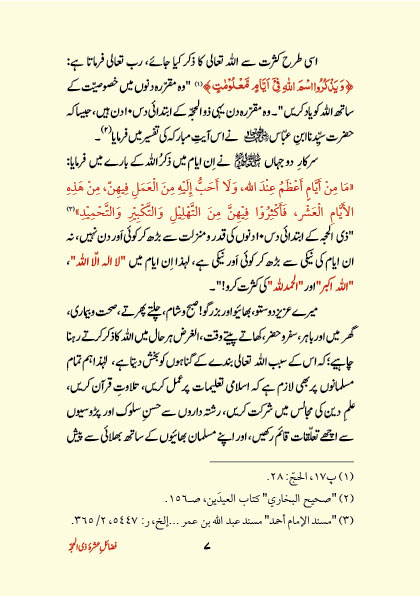 اسی طرح کثرت سے اللہ تعالی کا ذکر کیا جائے، رب تعالی فرماتا ہے:
﴿وَيَذْكُرُوا اسْمَ اللهِ فِيْۤ اَيَّامٍ مَّعْلُوْمٰتٍ﴾(۱) "وہ مقررہ دنوں میں خصوصیّت کے
ساتھ اللہ کو یاد کریں"۔ وہ مقررہ دن، یہی ذو الحجّہ کے ابتدائی دس ۱۰ دن ہیں، جیسا کہ
حضرت سیّدنا ابنِ عبّاس نے اس آیتِ مبارکہ کی تفسیر میں فرمایا(۲)۔
سرکارِ دو جہاں ﷺ نے اِن ایام میں ذکرُ اللہ کے بارے میں فرمایا:
«مَا مِنْ أَيَّامٍ أَعْظَمُ عِنْدَ الله، وَلَا أَحَبُّ إِلَيْهِ مِنَ الْعَمَلِ فِيهِنّ، مِنْ هَذِهِ
الأَيَّامِ الْعَشْرِ، فَأَكْثِرُوْا فِيْهِنَّ مِنَ التَّهْلِيْلِ وَالتَّكْبِيْرِ وَالتَّحْمِيْدِ»(۳)
"ذی الحجہ کے ابتدائی دس ۱۰ دنوں کی قدر و منزلت سے بڑھ کر کوئی اَور دن نہیں، نہ
ان ایام کی نیکی سے بڑھ کر کوئی اَور نیکی ہے، لہذا اِن ایام میں "لا الہ الّا اللہ"،
"اللہ اکبر" اور "الحمد للہ" کی کثرت کرو!"۔
میرے عزیز دوستو، بھائیو اور بزرگو! صبح و شام، چلتے پھرتے، صحت و بیماری،
گھر میں اور باہر، سفر و حضر، کھاتے پیتے وقت، الغرض ہر حال میں اللہ کا ذکر کرتے رہنا
چاہیے؛ کہ اس کے سبب اللہ تعالی بندے کے گناہوں کو بخش دیتا ہے، لہذا ہم تمام
مسلمانوں پر بھی لازم ہے کہ اسلامی تعلیمات پر عمل کریں، تلاوتِ قرآن کریں،
علمِ دین کی مجالس میں شرکت کریں، رشتہ داروں سے حسنِ سلوک اور پڑوسیوں
سے اچھے تعلّقات قائم رکھیں، اور اپنے مسلمان بھائیوں کے ساتھ بھلائی سے پیش
(۱) پ۱۷، الحجّ: ۲۸.
(۲) "صحيح البخاري" كتاب العيدَين، صـ۱۵٦.
(۳) "مسند الإمام أحمد" مسند عبد الله بن عمر ...إلخ، ر: ۵۴۴۷، ۲/ ۳٦۵.
۷
فضائلِ عشرۂ ذی الحجّہ